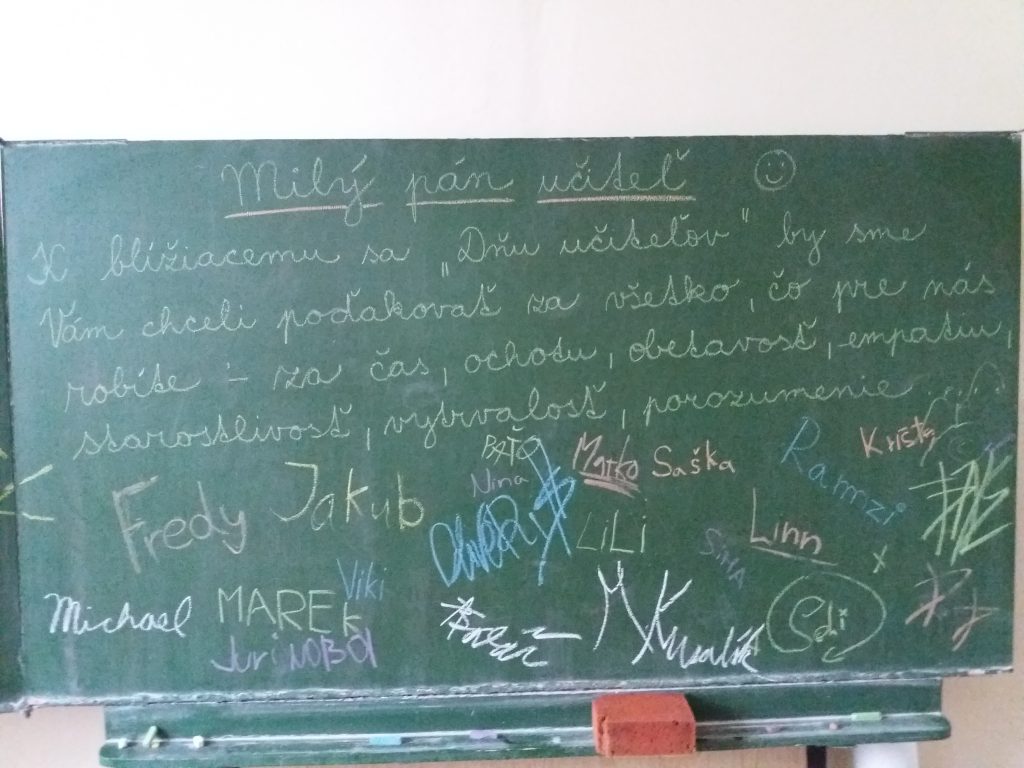 Milý pán učiteľ
K blížiacemu sa „Dňu učiteľov" by sme
Vám chceli poďakovať za všetko, čo pre nás
robíte - za čas, ochotu, obetavosť, empatiu,
starostlivosť, vytrvalosť, porozumenie...
BAŤO Marko Saška Ramzi Kristy
Fredy Jakub Nina LiLi Linn SiMA
Michael MAREk Viki Edi
Juri NOBOl